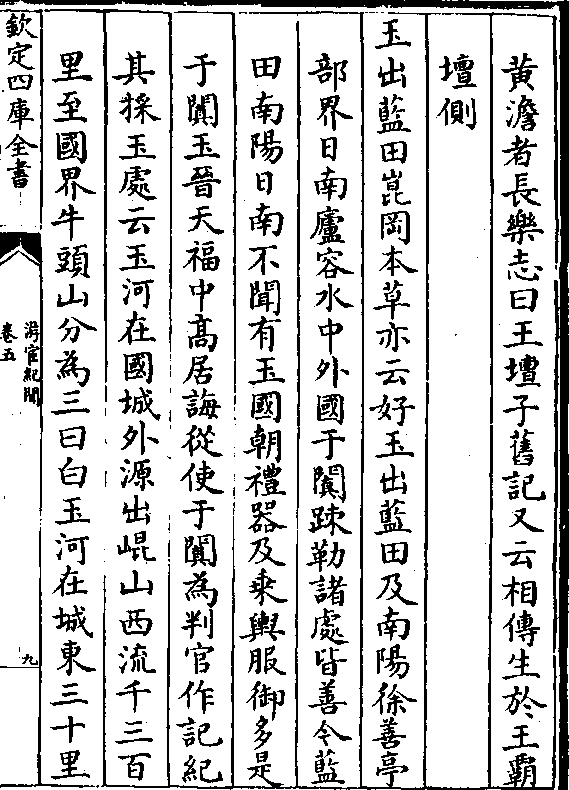 黄澹者長樂志曰王壇子舊記又云相傳生於王霸
壇側
玉出藍田崑岡本草亦云好玉出藍田及南陽徐善亭
部界日南廬容水中外國于闐踈勒諸處皆善令藍
田南陽日南不聞有玉國朝禮器及乗輿服御多是
于闐玉晉天福中髙居誨從使于闐為判官作記紀
其採玉處云玉河在國城外源出崐山西流千三百
里至國界牛頭山分為三曰白玉河在城東三十里
欽定四庫全書
游宦紀聞
卷五
九